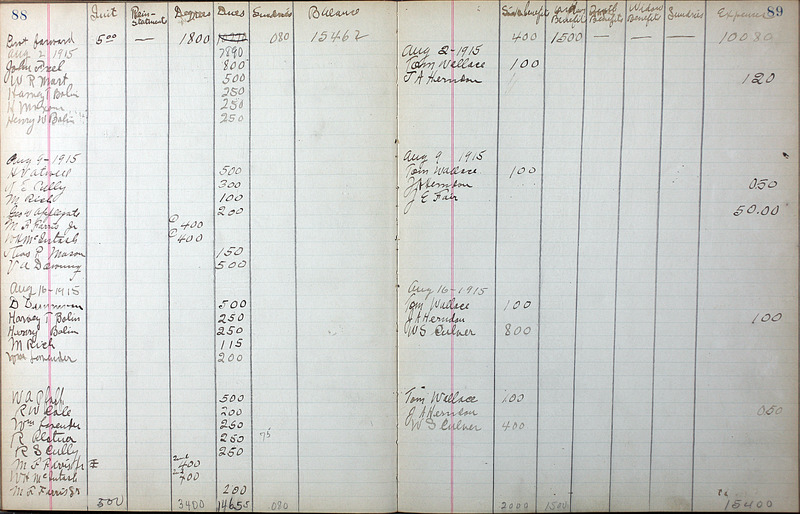 88 Init Rein-statement Degrees Dues Sundries Balance
Brot forward 5 00 — 1800 080 15462
Aug 2 1915 7890
John Axel 800
W R Mart 500
Harvey T Bolin 250
250
Henry W Bolin 250
Aug 9 - 1915
H V Atwell 500
J E Cully 300
M Rich 100
Geo W Applegate 200
M F Farris Jr 400
W H McIntosh 400
Thos P Mason 150
500
Aug 16 - 1915
500
Harvey T Bolin 250
Henry Bolin 250
M Rich 115
Wm Lavender 200
W A Pfaff 500
R W Cale 200
Wm Lavender 250
R 250 75
R S Cully 250
M F Farris Jr 2nd 400
W H McIntosh 2nd 400
M F Farris Sr 200
500 3400 14655 080
Sick benefit Orphan Benefit Death Benefit Widow Benefit Sundries Expenses 89
400 1500 — — — 10080
Aug 2 - 1915
Tom Wallace 100
J A Herndon 120
Aug 9 1915
Tom Wallace 100
J A Herndon 050
J E Fair 50.00
Aug 16 - 1915
Tom Wallace 100
J A Herndon 100
W S Culver 800
Tom Wallace 100
J A Herndon 050
W S Culver 400
2000 1500 15400